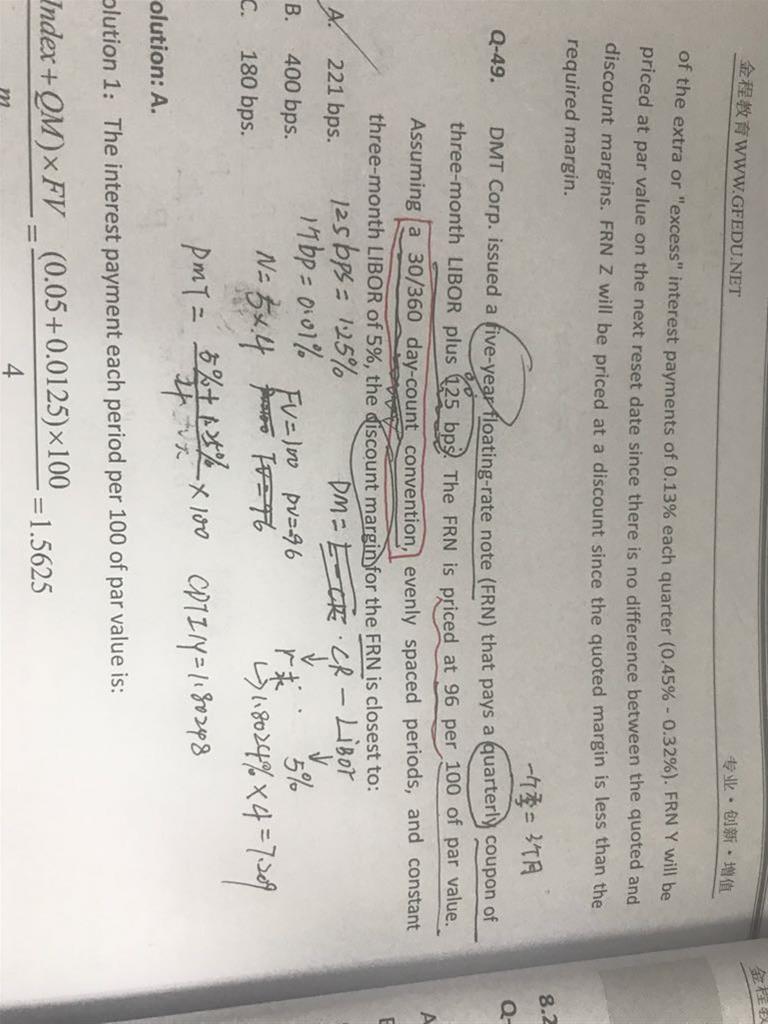 金程教育 WWW.GFEDU.NET 专业·创新·增值
of the extra or "excess" interest payments of 0.13% each quarter (0.45% - 0.32%). FRN Y will be
priced at par value on the next reset date since there is no difference between the quoted and
discount margins. FRN Z will be priced at a discount since the quoted margin is less than the
required margin.
一个季=3个月
Q-49. DMT Corp. issued a five-year floating-rate note (FRN) that pays a quarterly coupon of
three-month LIBOR plus 125 bps. The FRN is priced at 96 per 100 of par value.
Assuming a 30/360 day-count convention, evenly spaced periods, and constant
three-month LIBOR of 5%, the discount margin for the FRN is closest to:
A. 221 bps.
B. 400 bps.
C. 180 bps.
125 bps = 1.25%
1个bp = 0.01%
DM = CR - Libor
r求. 5%
↳1.8024% × 4 = 7.209
N = 5×4 FV=100 PV=-96
PMT = 5%+1.25% × 100 CPT I/Y = 1.80248
4
olution: A.
olution 1: The interest payment each period per 100 of par value is:
Index + QM) × FV = (0.05 + 0.0125)×100 = 1.5625
m 4
金程教
8.2
Q-
A